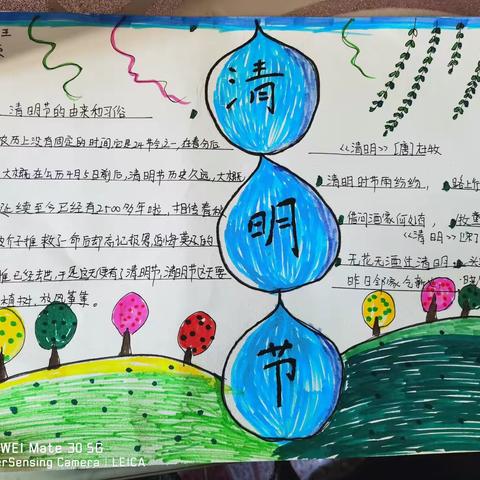 清
明
节
清明节的由来和习俗
农历上没有固定的时间,它是24节令之一,在春分后
大概在公历4月5日前后,清明节历史久远,大概
延续至今已经有2500多年啦,相传春秋
介子推救了一命后却忘记报恩
已经去世,于是后来便有了清明节,清明节这天要
植树、放风筝等。
《清明》[唐]杜牧
清明时节雨纷纷,路上行
借问酒家何处有,牧童
《清明》
无花无酒过清明,兴
昨日邻家乞新火,晓
WEI Mate 30 5G
erSensing Camera | LEICA